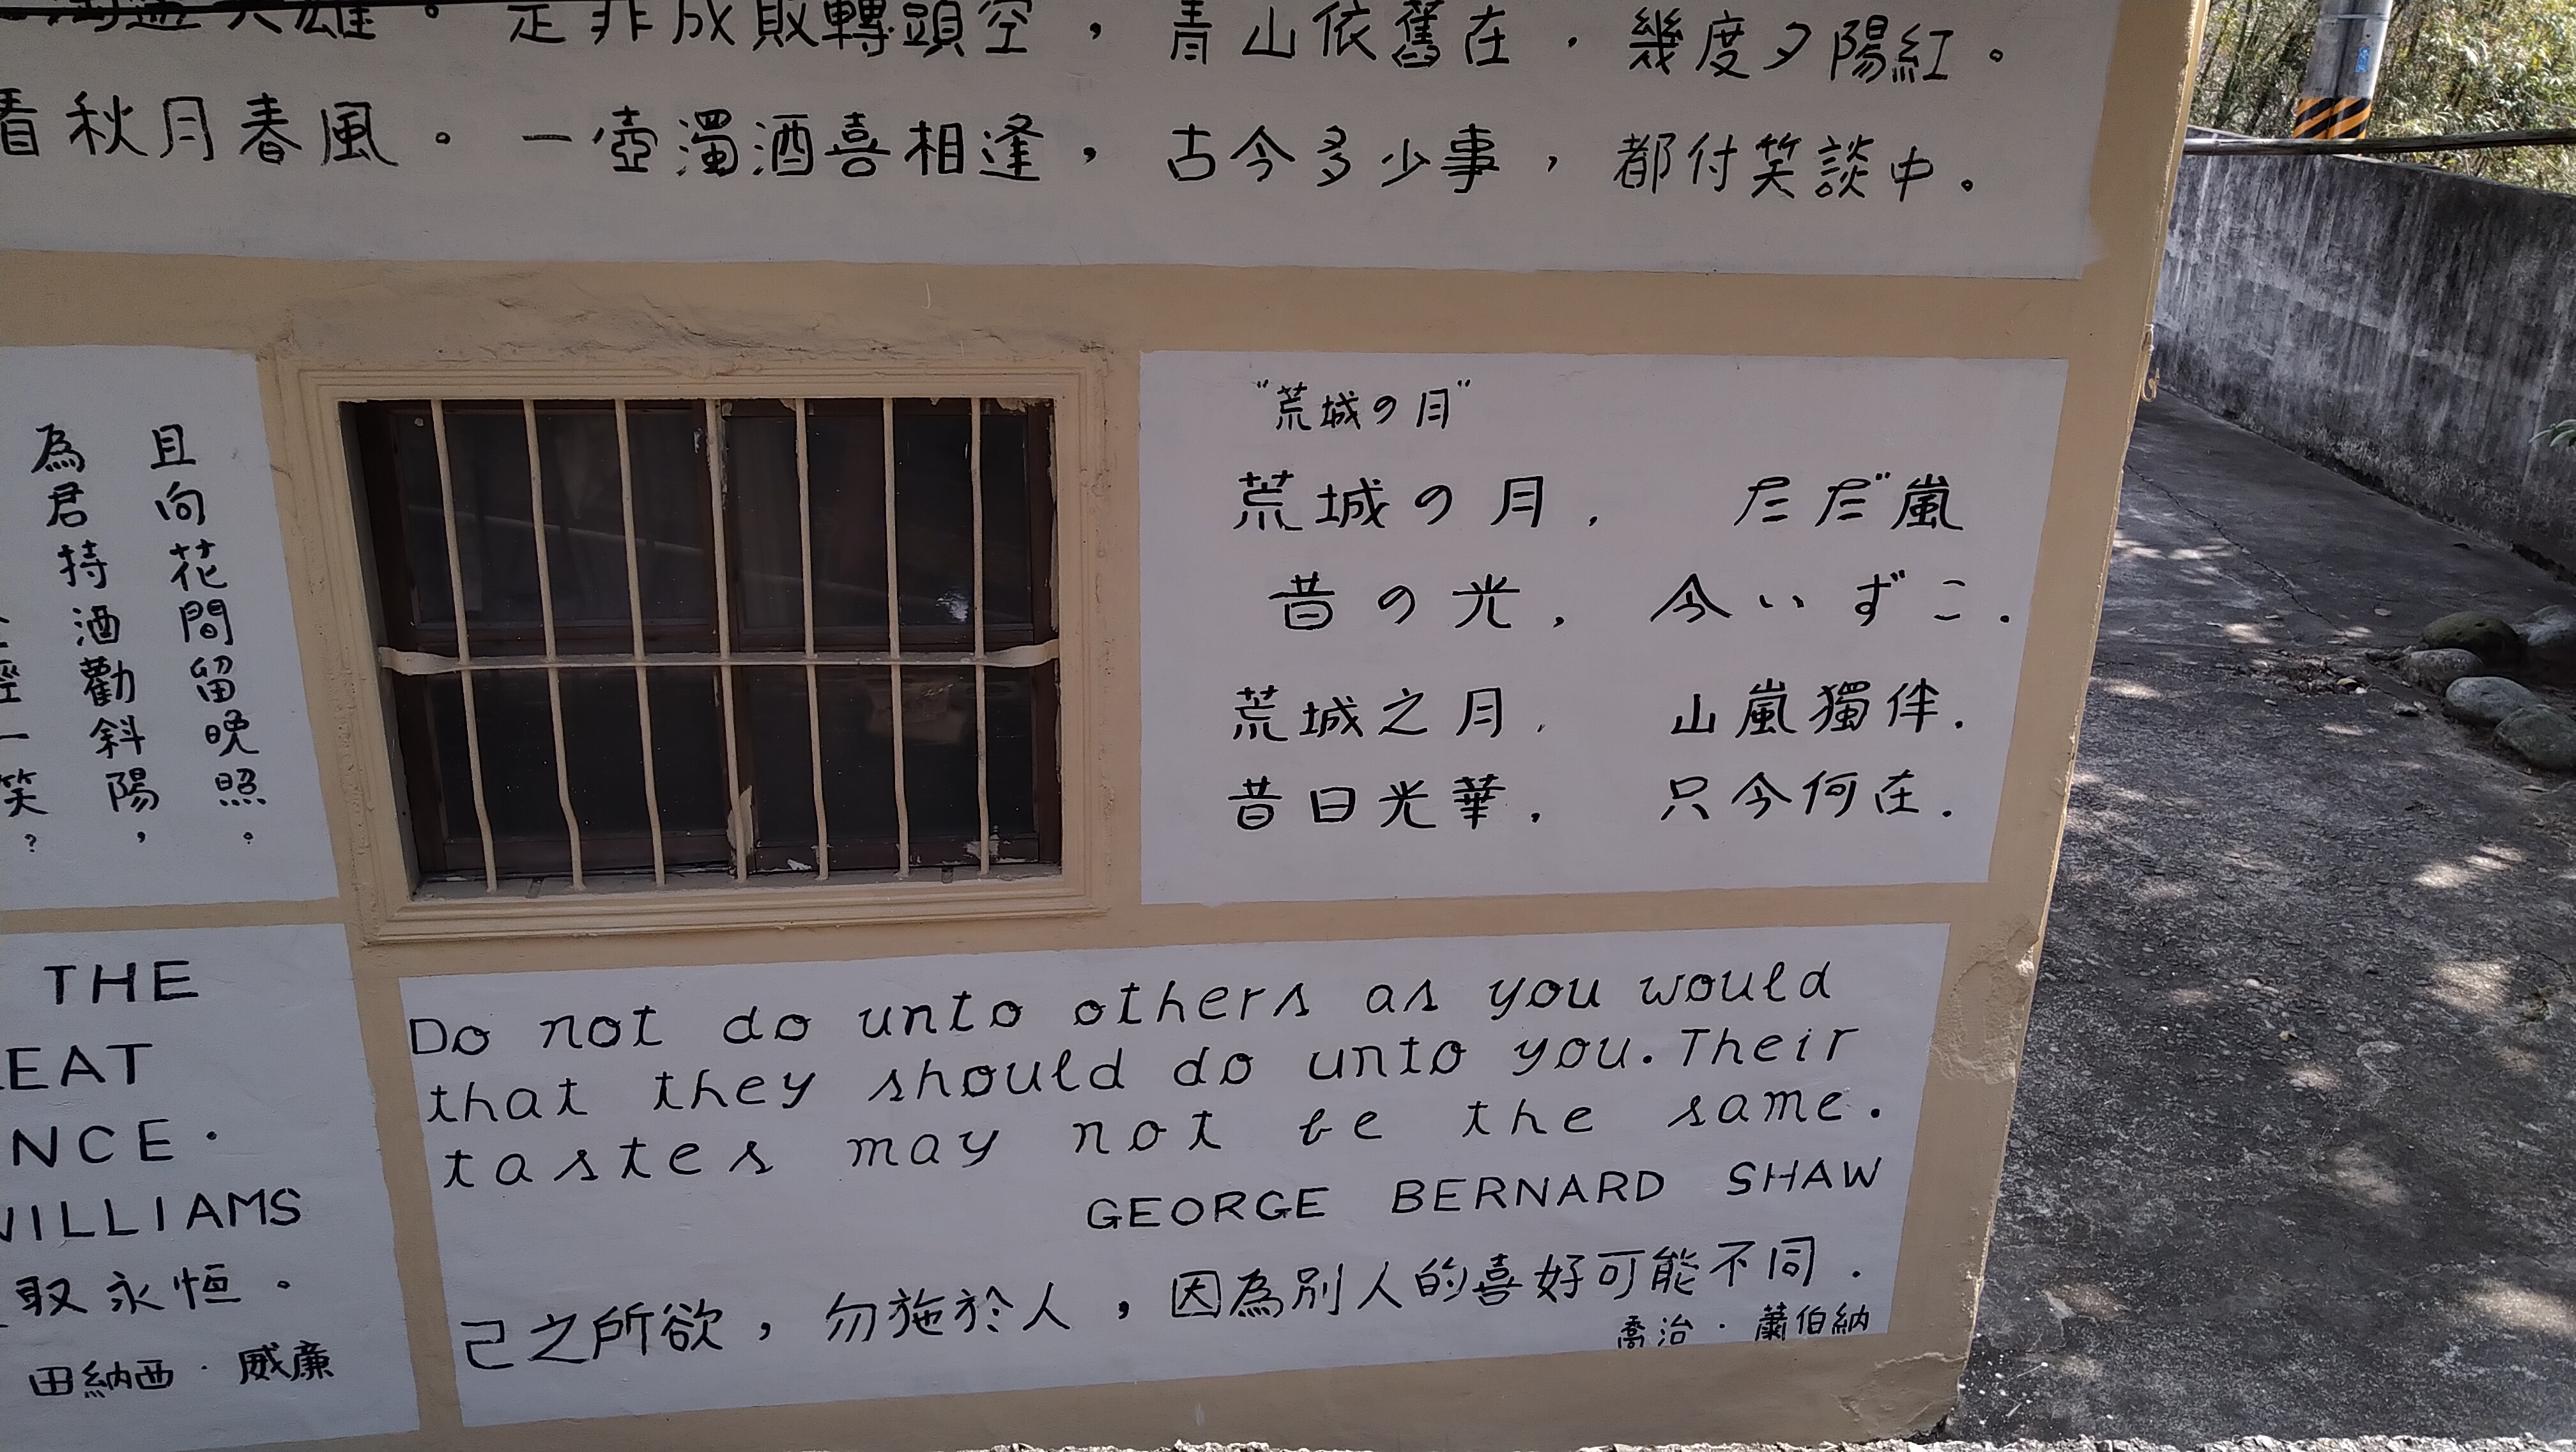 英雄。是非成敗轉頭空，青山依舊在．幾度夕陽紅。
看秋月春風。一壺濁酒喜相逢，古今多少事，都付笑談中。
且向花間留晚照。
為君持酒勸斜陽，
輕一笑？
"荒城の月"
荒城の月． ただ嵐
昔の光． 今いずこ．
荒城之月． 山嵐獨伴．
昔日光華． 只今何在．
THE
EAT
NCE．
WILLIAMS
取永恒。
田納西．威廉
Do not do unto others as you would
that they should do unto you. Their
tastes may not be the same.
GEORGE BERNARD SHAW
己之所欲，勿施於人，因為別人的喜好可能不同．
喬治．蕭伯納